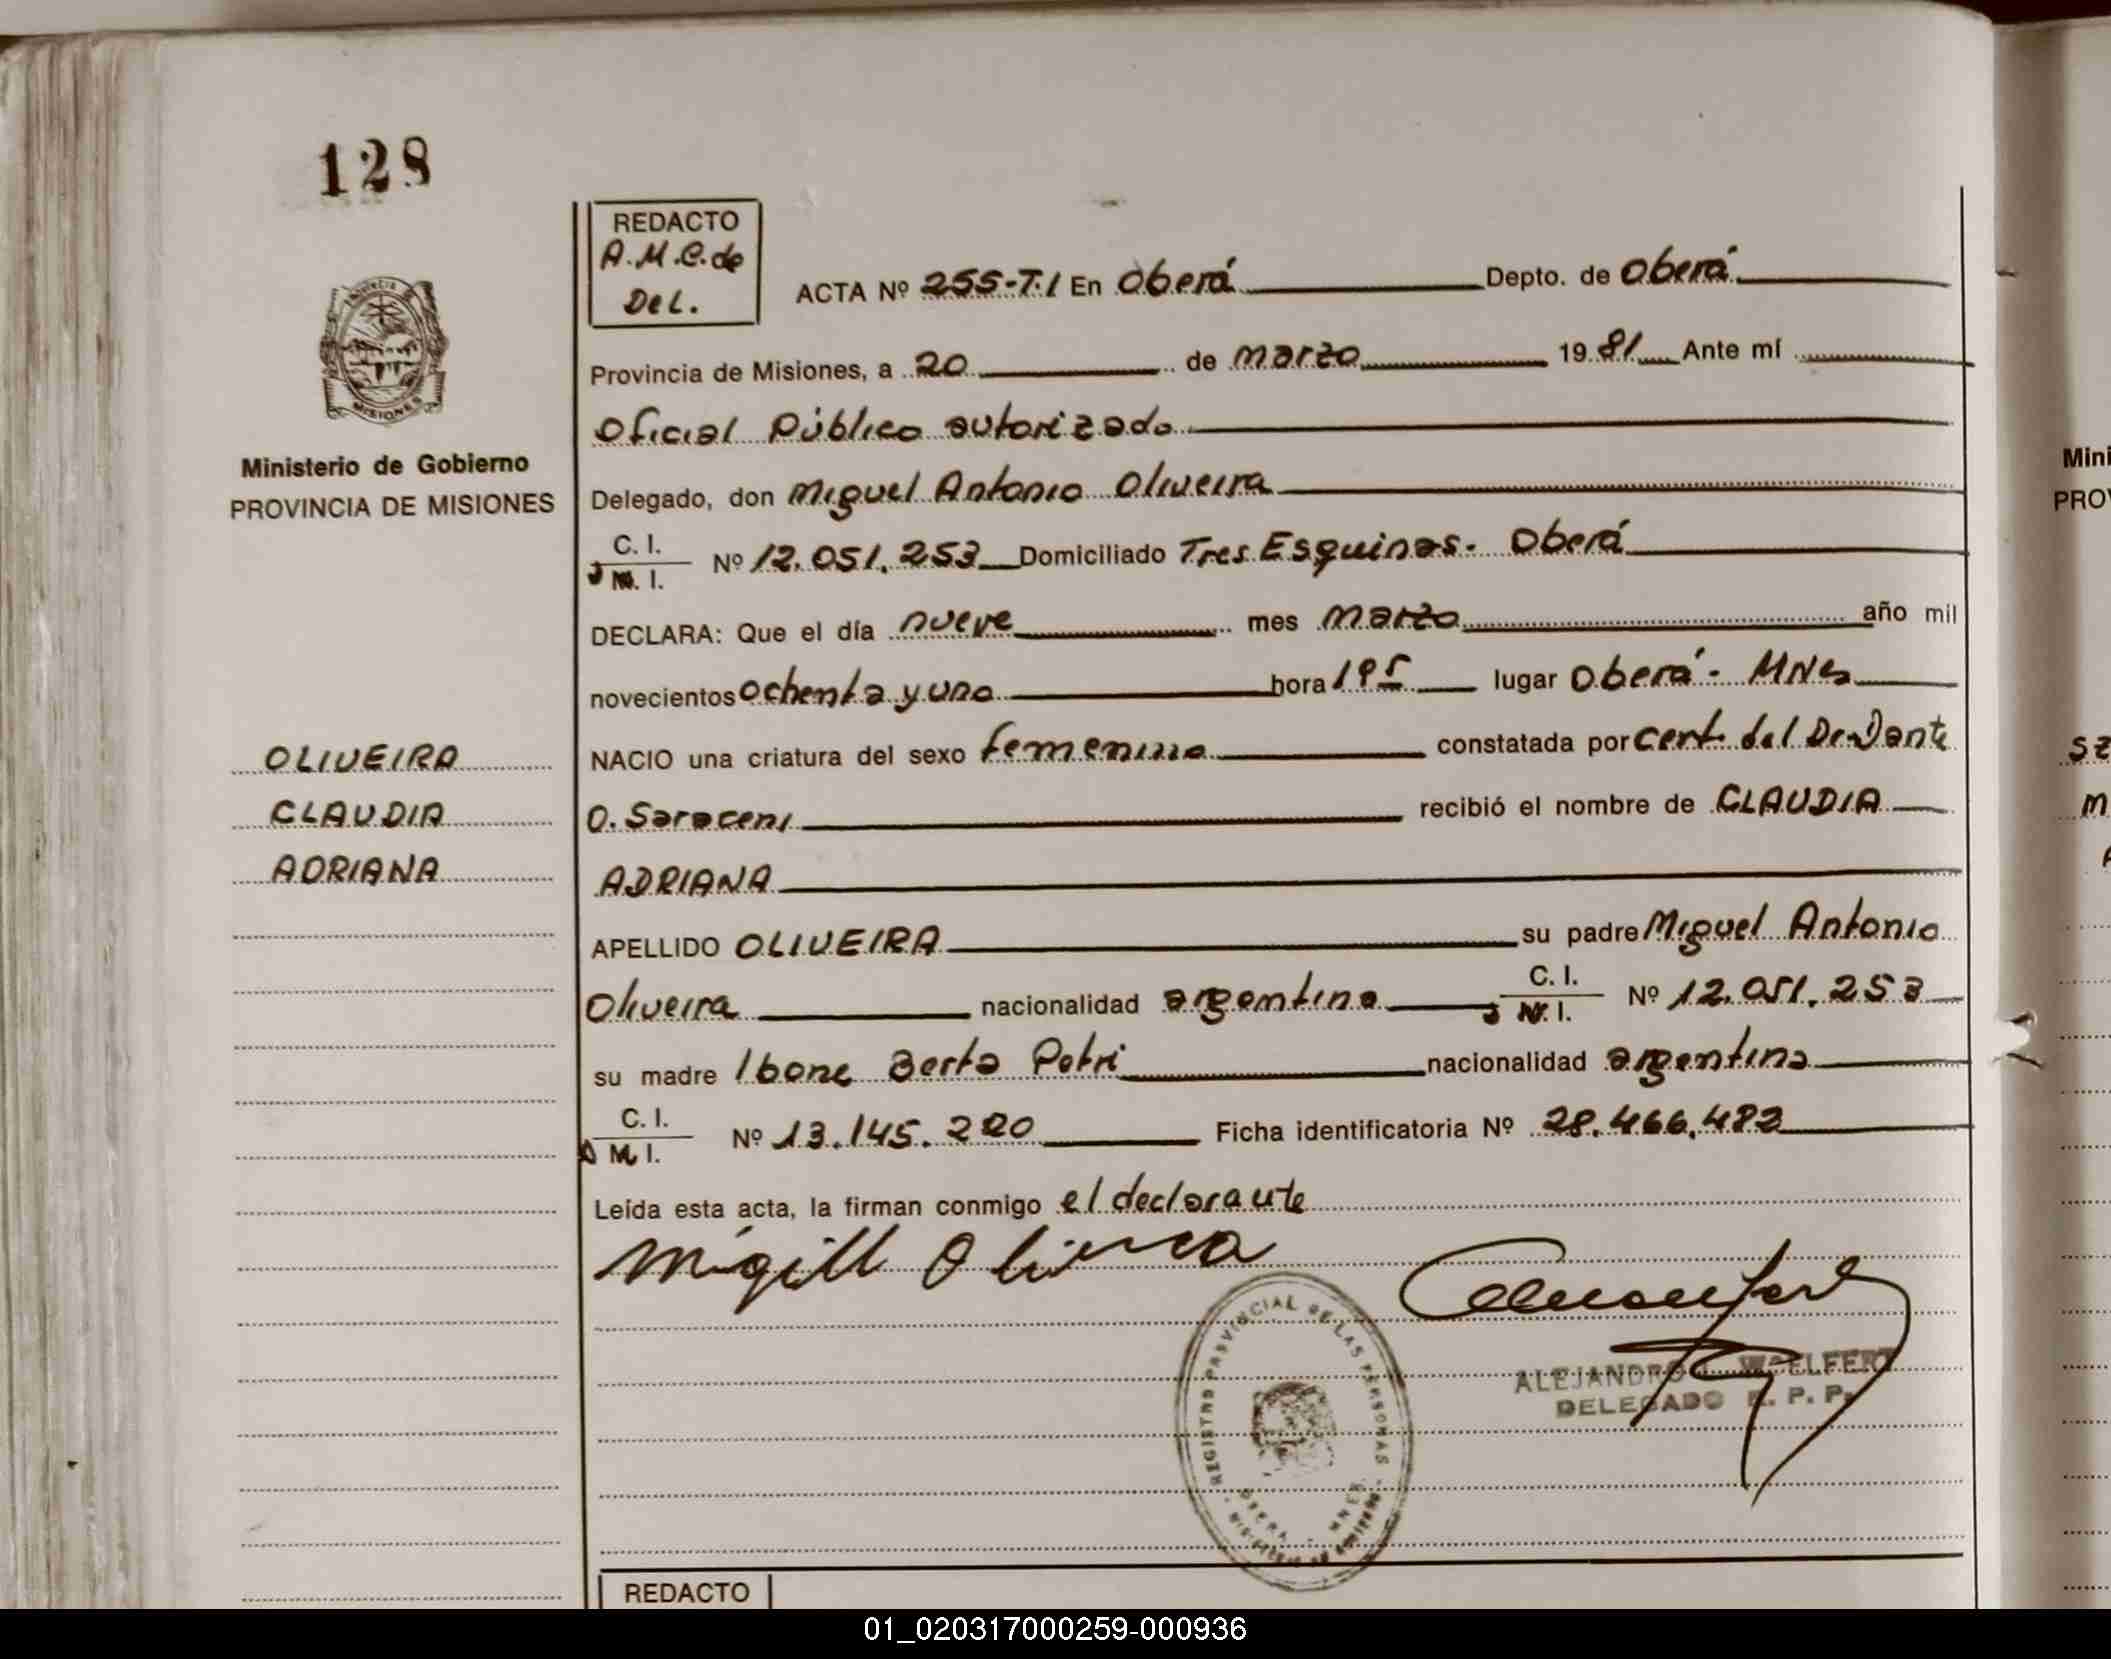 128
REDACTO
A.M.C. de
Del.
ACTA Nº 255-T.I En Oberá Depto. de Oberá
Provincia de Misiones, a 20 de marzo 1981 Ante mí
Oficial Público autorizado
Ministerio de Gobierno
PROVINCIA DE MISIONES
Delegado, don Miguel Antonio Oliveira
C. I.
M. I.
Nº 12.051.253 Domiciliado Tres Esquinas. Oberá
DECLARA: Que el día nueve mes marzo año mil
novecientos ochenta y uno hora lugar Oberá - Mnes
NACIO una criatura del sexo femenino constatada por cert. del Dr. Dante
O. Saraceni recibió el nombre de CLAUDIA
ADRIANA
OLIVEIRA
CLAUDIA
ADRIANA
APELLIDO OLIVEIRA su padre Miguel Antonio
Oliveira nacionalidad argentina C. I. Nº 12.051.253
su madre Ibone Berta Petri nacionalidad argentina
C. I.
M. I.
Nº 13.145.220 Ficha identificatoria Nº 28.466.482
Leída esta acta, la firman conmigo el declarante
REGISTRO PROVINCIAL DE LAS PERSONAS
OBERA - MNES
ALEJANDRO WOELFERT
DELEGADO R. P. P.
REDACTO
Mini
PROV
01_020317000259-000936